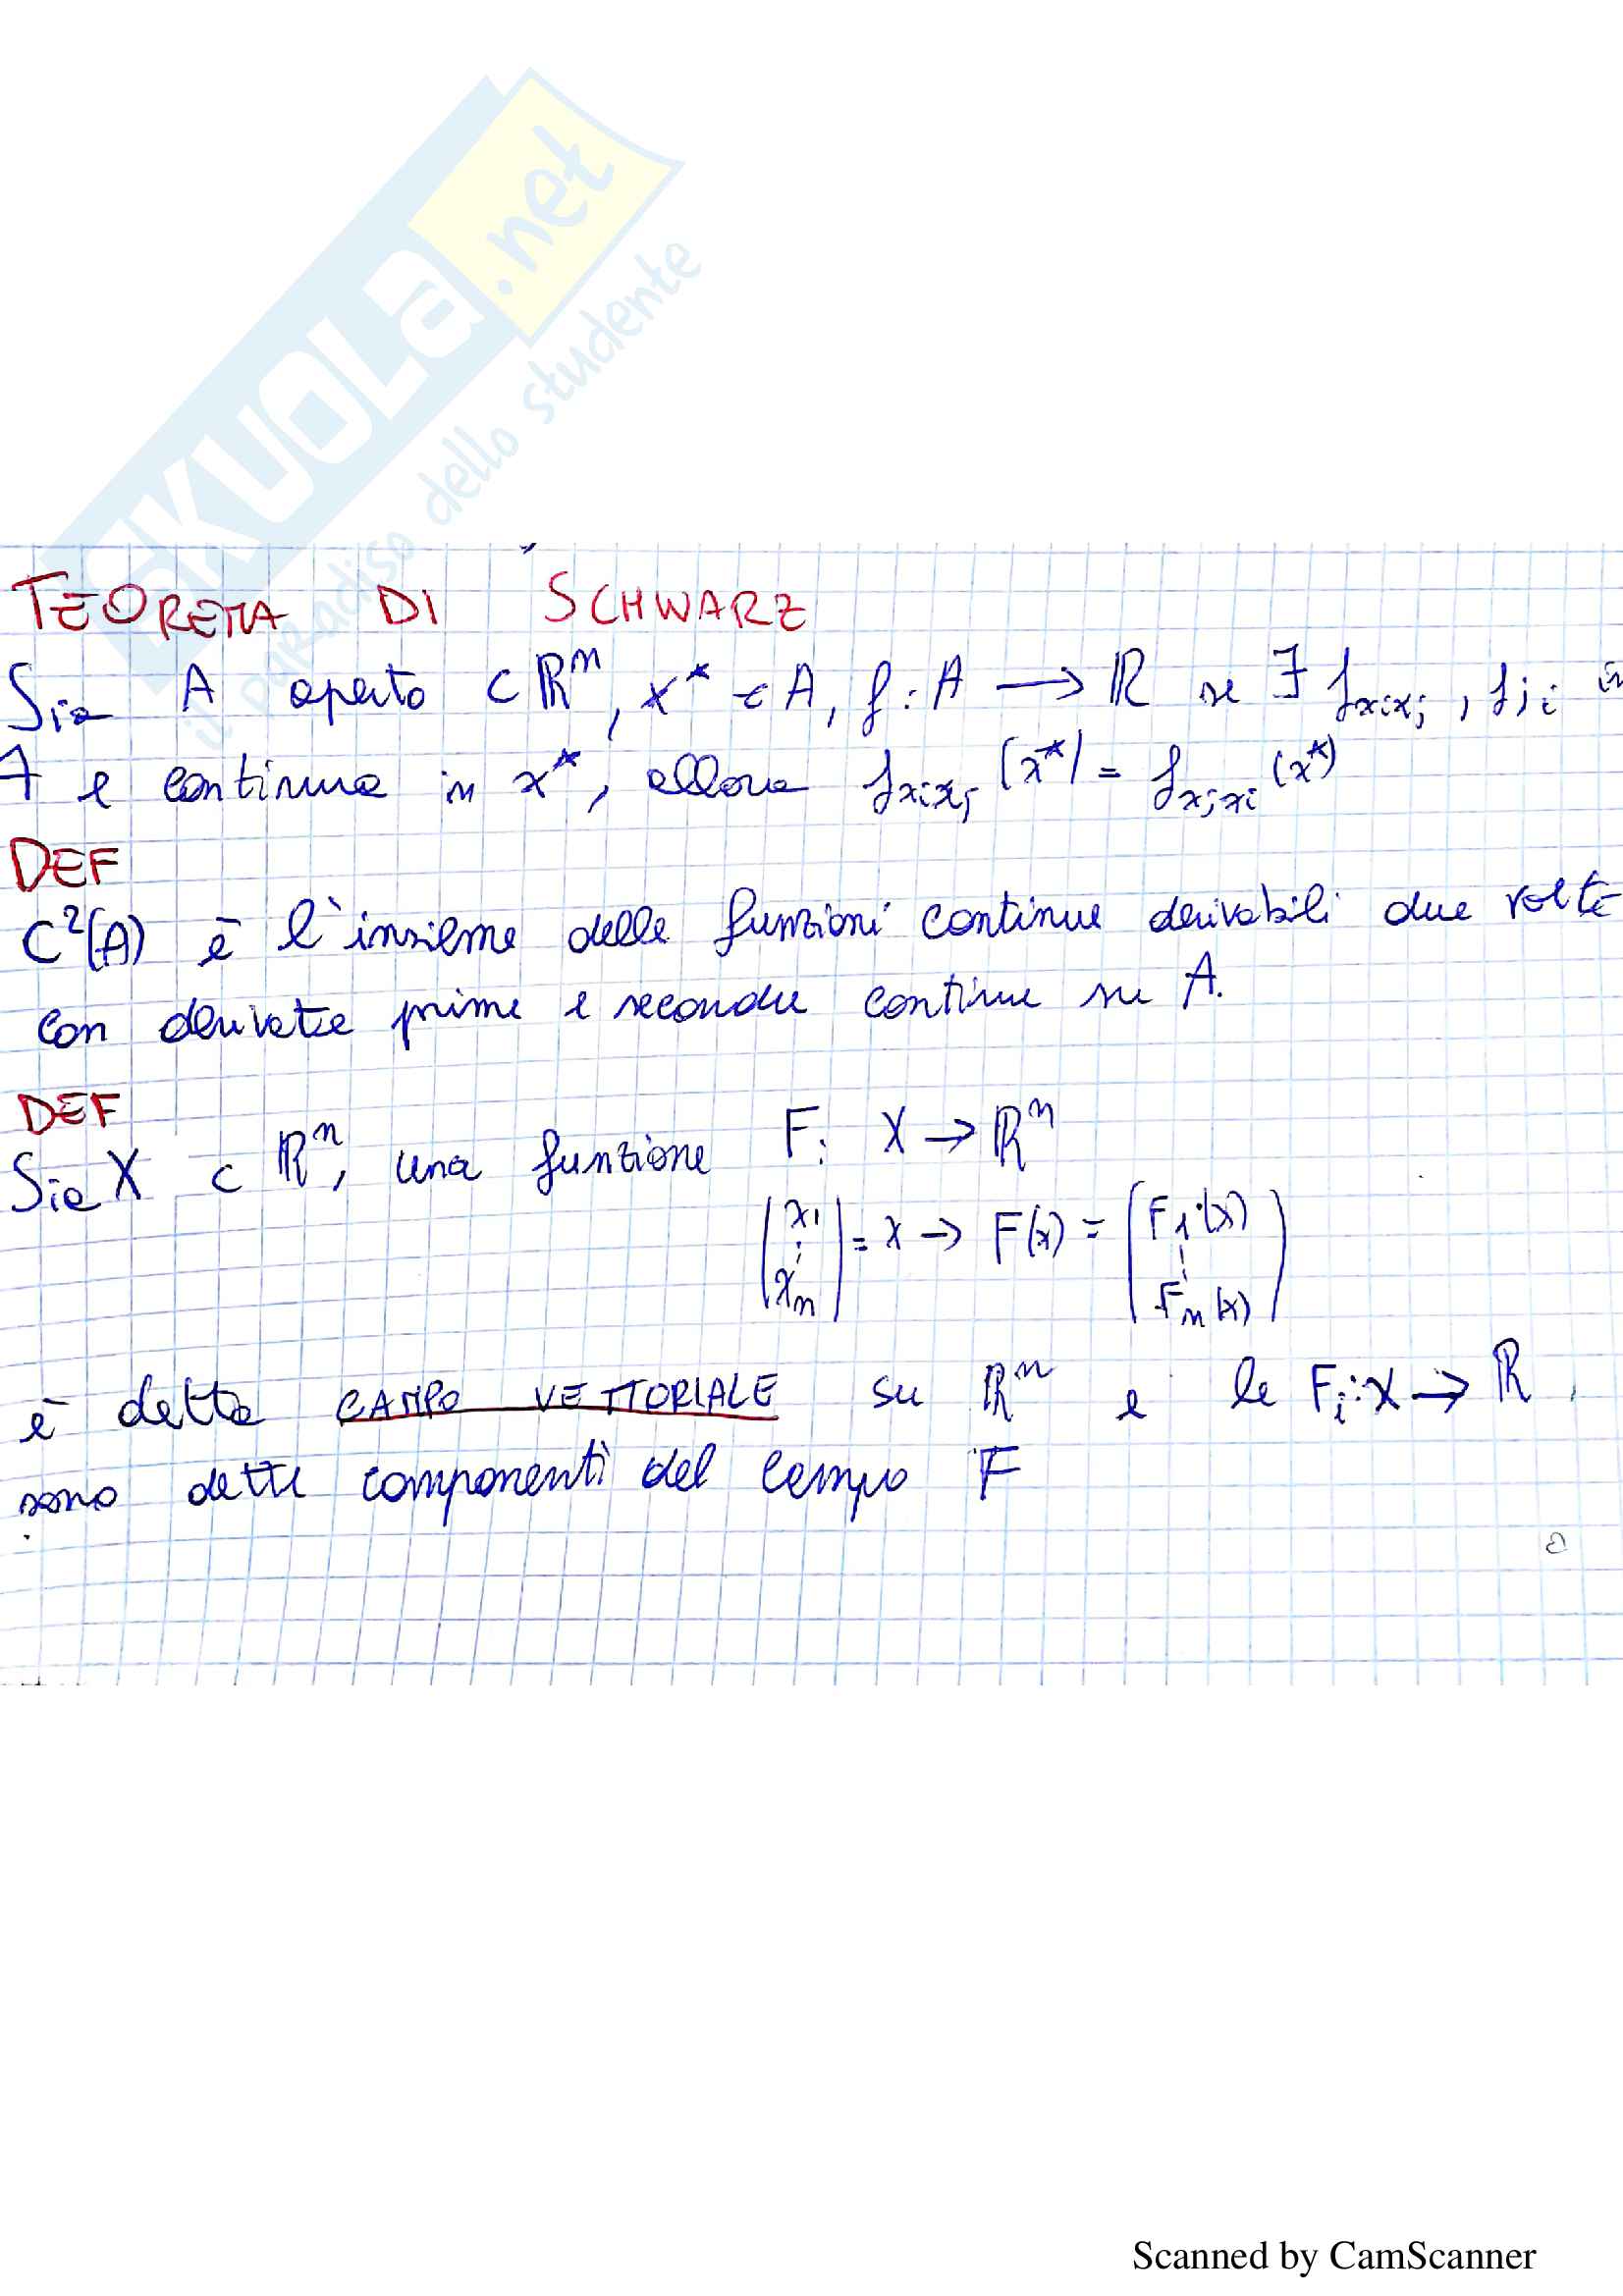 SKUOLA.net
il paradiso dello studente
TEOREMA DI SCHWARZ
Sia A aperto ⊂ ℝⁿ, x* ∈ A, f: A → ℝ se ∃ f_xixj, f_ji in
A e continue in x*, allora f_xixj (x*) = f_xjxi (x*)
DEF
C²(A) è l'insieme delle funzioni continue derivabili due volte
con derivate prime e seconde continue su A.
DEF
Sia X ⊂ ℝⁿ, una funzione F: X → ℝⁿ
(x1 ⋮ xn) = x → F(x) = (F1(x) ⋮ Fn(x))
è detta CAMPO VETTORIALE su ℝⁿ e le Fi: X → ℝ
sono dette componenti del campo F
Scanned by CamScanner